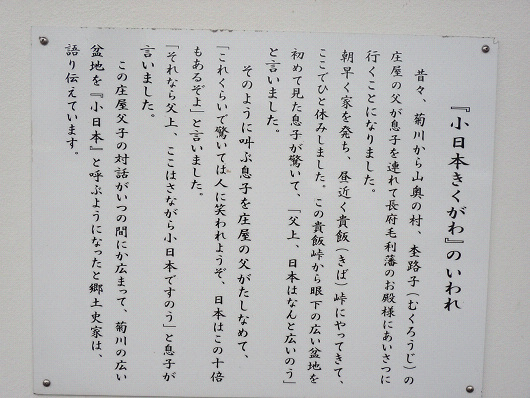 『小日本きくがわ』のいわれ
昔々、菊川から山奥の村、杢路子(むくろうじ)の
庄屋の父が息子を連れて長府毛利藩のお殿様にあいさつに
行くことになりました。
朝早く家を発ち、昼近く貴飯(きば)峠にやってきて、
ここでひと休みしました。この貴飯峠から眼下の広い盆地を
初めて見た息子が驚いて、「父上、日本はなんと広いのう」
と言いました。
そのように叫ぶ息子を庄屋の父がたしなめて、
「これくらいで驚いては人に笑われようぞ、日本はこの十倍
もあるぞよ」と言いました。
「それなら父上、ここはさながら小日本ですのう」と息子が
言いました。
この庄屋父子の対話がいつの間にか広まって、菊川の広い
盆地を『小日本』と呼ぶようになったと郷土史家は、
語り伝えています。